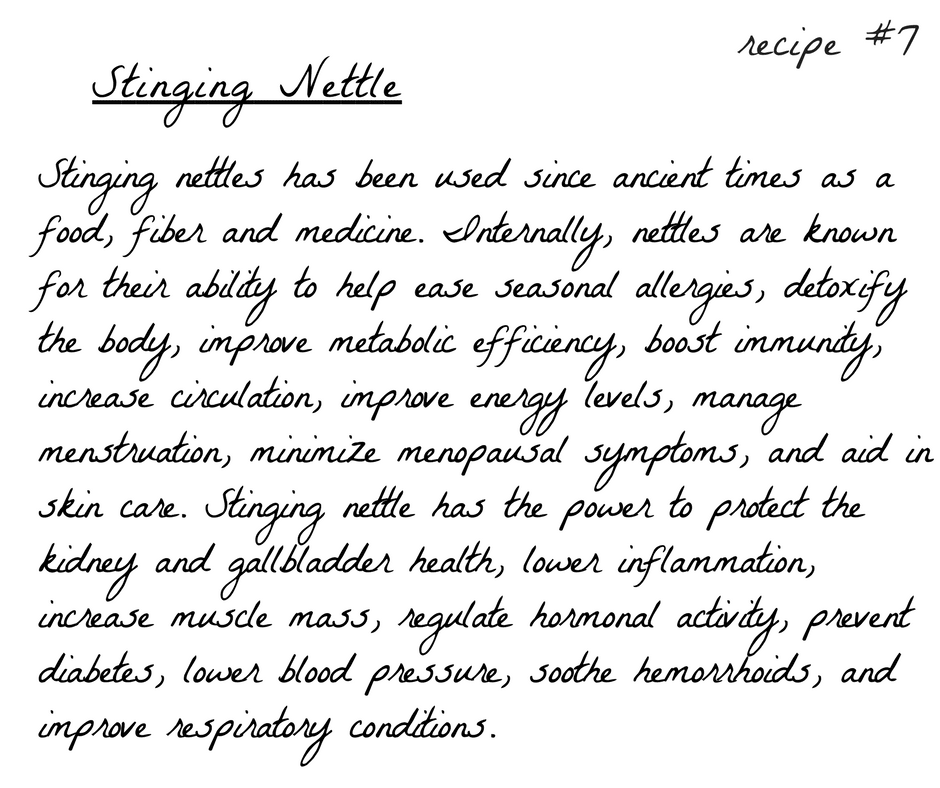 recipe #7
Stinging Nettle
Stinging nettles has been used since ancient times as a
food, fiber and medicine. Internally, nettles are known
for their ability to help ease seasonal allergies, detoxify
the body, improve metabolic efficiency, boost immunity,
increase circulation, improve energy levels, manage
menstruation, minimize menopausal symptoms, and aid in
skin care. Stinging nettle has the power to protect the
kidney and gallbladder health, lower inflammation,
increase muscle mass, regulate hormonal activity, prevent
diabetes, lower blood pressure, soothe hemorrhoids, and
improve respiratory conditions.